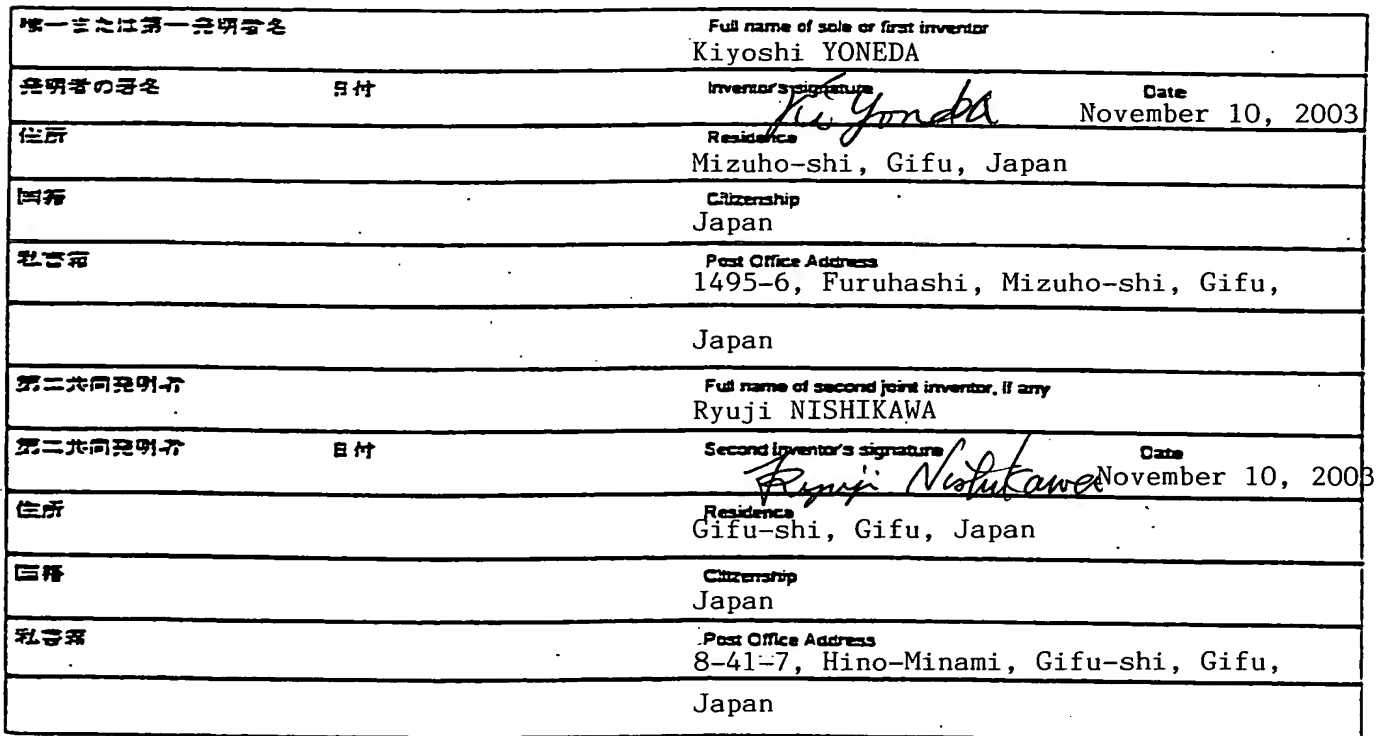 唯一または第一発明者名 Full name of sole or first inventor
Kiyoshi YONEDA
発明者の署名 日付 Inventor's signature Date
Ki Yoneda November 10, 2003
住所 Residence
Mizuho-shi, Gifu, Japan
国籍 Citizenship
Japan
私書箱 Post Office Address
1495-6, Furuhashi, Mizuho-shi, Gifu,
Japan
第二共同発明者 Full name of second joint inventor, if any
Ryuji NISHIKAWA
第二共同発明者 日付 Second inventor's signature Date
Ryuji Nishikawa November 10, 2003
住所 Residence
Gifu-shi, Gifu, Japan
国籍 Citizenship
Japan
私書箱 Post Office Address
8-41-7, Hino-Minami, Gifu-shi, Gifu,
Japan